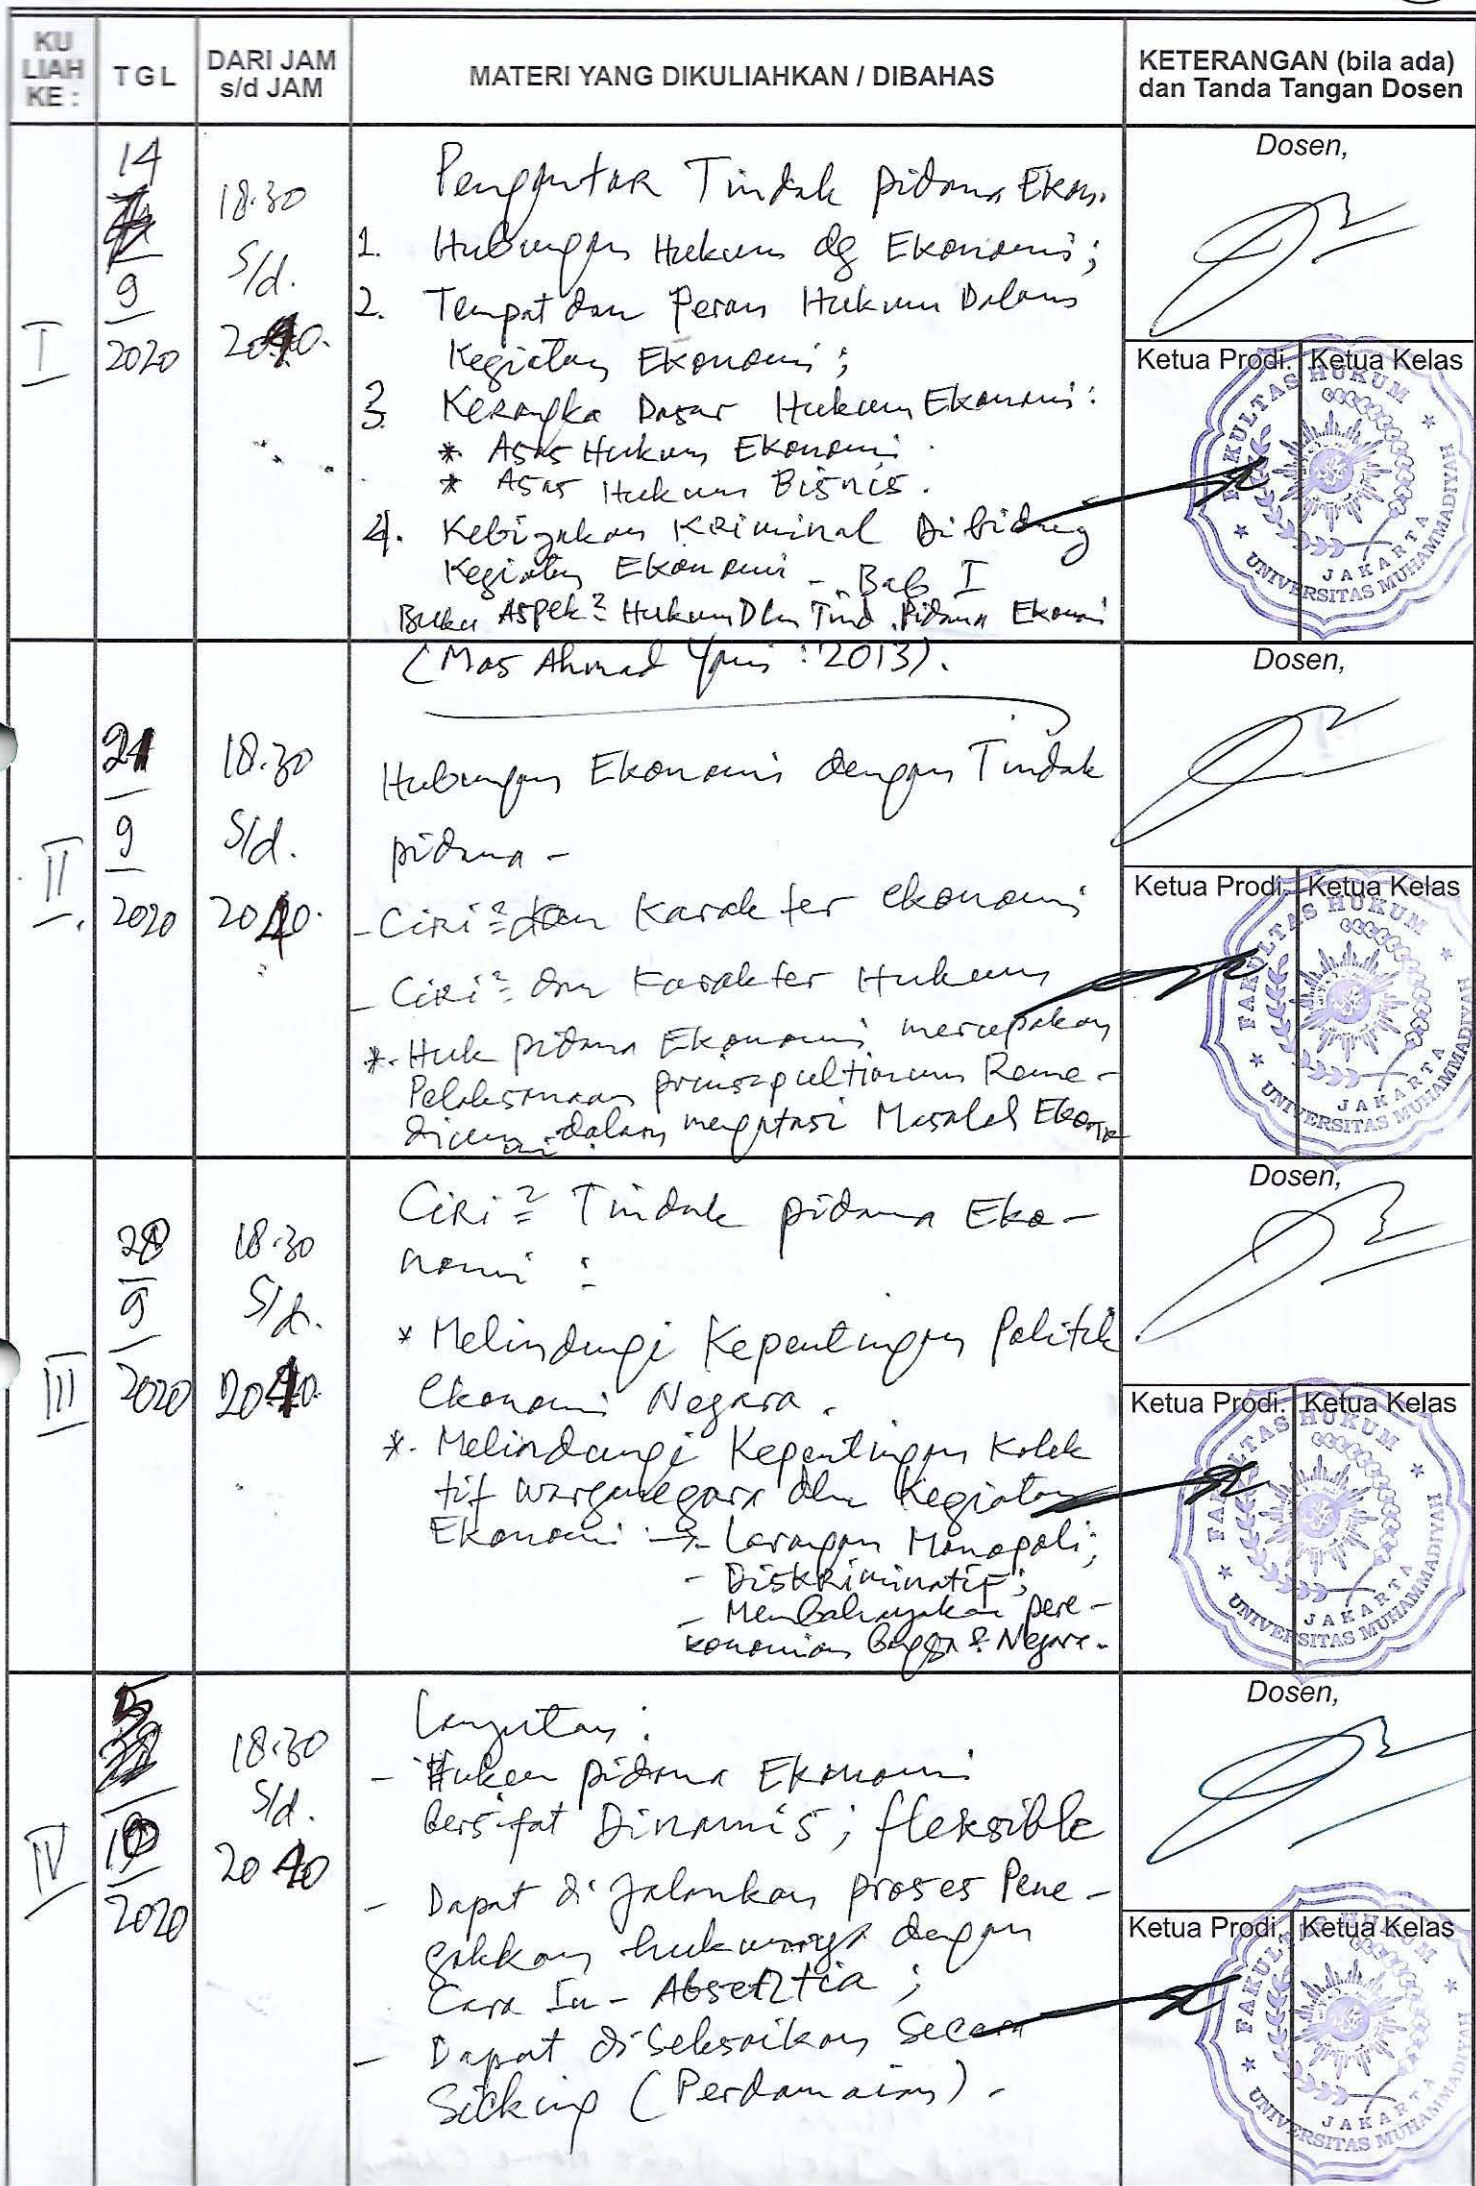 KU
LIAH
KE :
TGL
DARI JAM
s/d JAM
MATERI YANG DIKULIAHKAN / DIBAHAS
KETERANGAN (bila ada)
dan Tanda Tangan Dosen
I
14
9
2020
18.30
S/d.
20.10.
Pengantar Tindak pidana Ekon.
1. Hubungan Hukum dg Ekonomi;
2. Tempat dan Peran Hukum Dalam
Kegiatan Ekonomi;
3. Kerangka Dasar Hukum Ekonomi:
* Asas Hukum Ekonomi.
* Asas Hukum Bisnis.
4. Kebijakan Kriminal Dibidang
Kegiatan Ekonomi - Bab I
Buku Aspek2 Hukum Dlm Tind. Pidana Ekonomi
(Mas Ahmad Yani : 2013).
Dosen,
Ketua Prodi. Ketua Kelas
FAKULTAS HUKUM
UNIVERSITAS MUHAMMADIYAH
JAKARTA
II
21
9
2020
18.30
S/d.
20.10.
Hubungan Ekonomi dengan Tindak
pidana -
- Ciri2 dan Karakter ekonomi
- Ciri2 dan Karakter Hukum
*. Huk pidana Ekonomi merupakan
Pelaksanaan prinsip ultimum Reme-
dium dalam mengatasi Masalah Ekono
mi.
Dosen,
Ketua Prodi. Ketua Kelas
FAKULTAS HUKUM
UNIVERSITAS MUHAMMADIYAH
JAKARTA
III
28
9
2020
18.30
S/d.
20.10.
Ciri2 Tindak pidana Eko-
nomi :
* Melindungi Kepentingan Politik
ekonomi Negara.
*. Melindungi Kepentingan Kolek
tif warganegara dlm Kegiatan
Ekonomi → - Larangan Monopoli;
- Diskriminatif;
- Membahayakan pere-
konomian Bangsa & Negara.
Dosen,
Ketua Prodi. Ketua Kelas
FAKULTAS HUKUM
UNIVERSITAS MUHAMMADIYAH
JAKARTA
IV
5
10
2020
18.30
S/d.
20 10
Lanjutan :
- Hukum pidana Ekonomi
bersifat Dinamis; fleksible
- Dapat di Jalankan proses Pene-
gakkan hukumnya dengan
Cara In-Absentia;
- Dapat diSelesaikan Secara
Sicking (Perdamaian).
Dosen,
Ketua Prodi. Ketua Kelas
FAKULTAS HUKUM
UNIVERSITAS MUHAMMADIYAH
JAKARTA